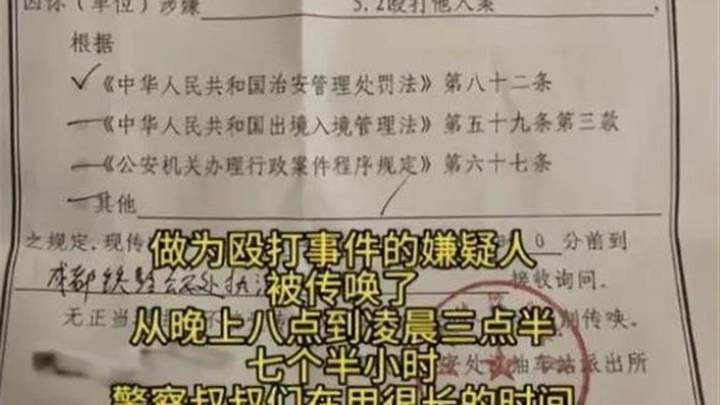 因你（单位）涉嫌 5.2殴打他人案，
根据
✓《中华人民共和国治安管理处罚法》第八十二条
《中华人民共和国出境入境管理法》第五十九条第三款
《公安机关办理行政案件程序规定》第六十七条
其他
之规定，现传 0 分前到
成都铁路公安处 接收询问。
无正当 传唤。
安处 油车站派出所
做为殴打事件的嫌疑人
被传唤了
从晚上八点到凌晨三点半
七个半小时
警察叔叔们在用很长的时间